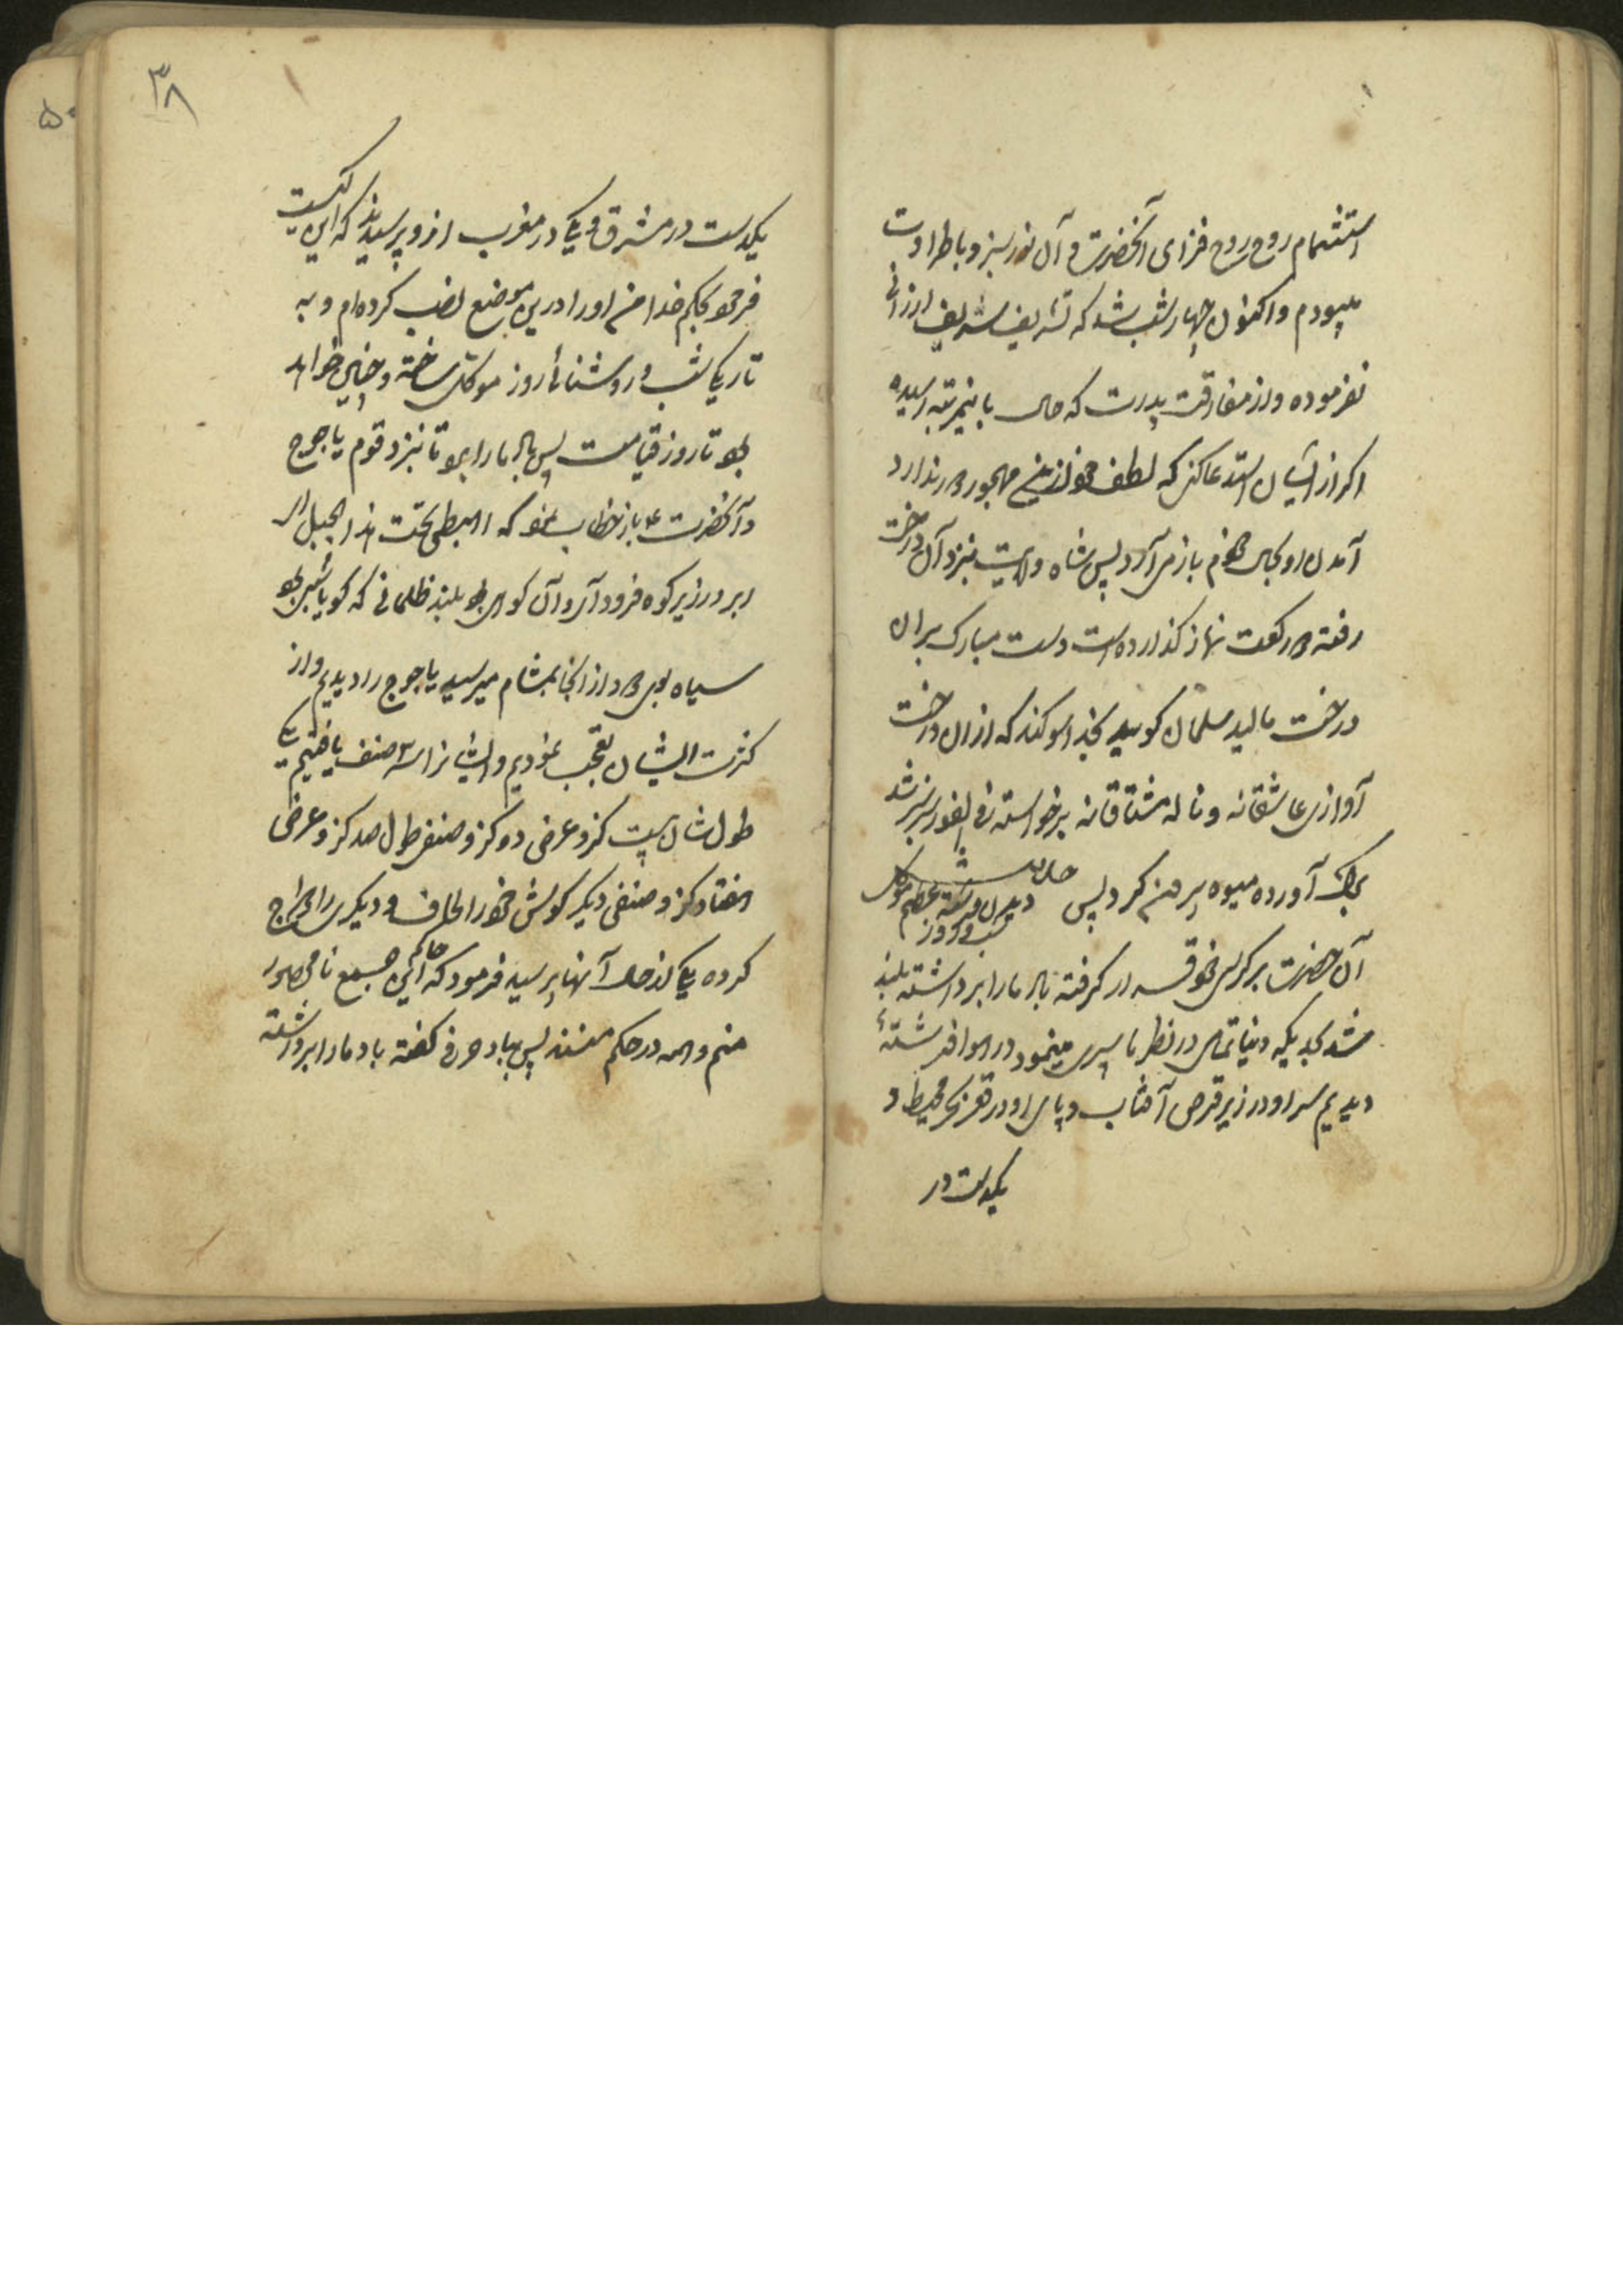 استشمام روح روح فزای آنحضرت و آل نور سبز و با طراوت
میبودم و اکنون چهار شب شد که تشریف شریف ارزانی
نفرموده و از مفارقت پدرت که حال باینمرتبه رسیده
اکر از ایشان استدعا کنی که لطف خود از من مهجور ندارد
آمدن او بحال خودم باز می آرد پس شاه ولایت نزد آن درخت
رفته دو رکعت نماز کذارده است دست مبارک بر ان
درخت مالید سلمان کوید بخدا سوکند که از ان درخت
آوازی عاشقانه و ناله مشتاقانه برخواسته فی الفور سبز شد
برک آورده میوه بیرون کرد پس
دیدن فرشته عظیم موکل
شب و روز
آن حضرت بر کرسی خود قرار کرفته باد ما را برداشته بلند
شد بحدیکه دنیا تمامی در نظر ما سپری مینمود در هوا فرشتهٔ
دیدیم سر او در زیر قرص آفتاب و پای او در قعر بحر محیط و
یکدست در
۳۸
۵۰
یکدست در مشرق و یکی در مغرب از و پرسیدند که این کیست
فرمود بحکم خدا من او را درین موضع نصب کرده ام و به
تاریکی شب و روشنائی روز موکل ساخته و چنین خواهد
بود تا روز قیامت پس باد ما را ببرد تا نزد قوم یاجوج
و آنحضرت ع باز خطاب نمود که اهبطی تحت هذا الجبل
ابر در زیر کوه فرود آمد و آن کوهی بود بلند ظلمانی که کویا شیر بود
سیاه بوی دود از انجا بمشام میرسید یاجوج را دیدیم و از
کثرت ایشان تعجب نمودیم و ایشانرا سه صنف یافتیم یکی
طول شان بیست کز و عرض دو کز و صنفی طول صد کز و عرض
هفتاد کز و صنفی دیکر کوش خود را لحاف و دیکری را
کرده یکی از حال آنها پرسید فرمود که حاکم این جمع نا محصور
منم و همه در حکم منند پس بباد حرفی کفته باد ما را برداشته